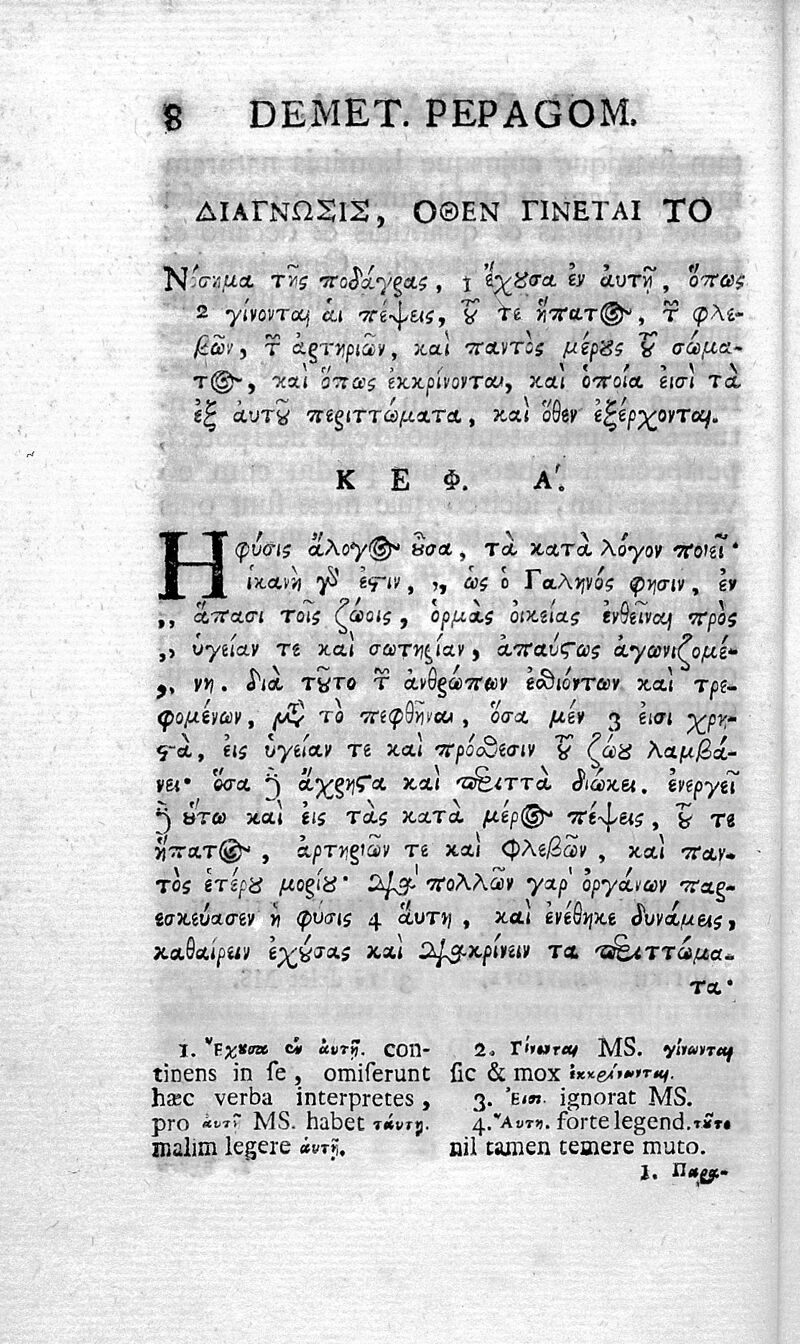 8 DEMET. PEPAGOM.
ΔΙΑΓΝΩΣΙΣ, ΟΘΕΝ ΓΙΝΕΤΑΙ ΤΟ
Νόσημα τῆς ποδάγρας, 1 ἔχȣσα ἐν ἁυτῇ, ὅπως
2 γίνονται ἁι πέψεις, τȣ͂ τε ἥπατος, τῶν φλε-
βῶν, τῶν ἀρτηριῶν, καὶ παντὸς μέρȣς τȣ͂ σώμα-
τος, καὶ ὅπως ἐκκρίνονται, καὶ ὁποία ἐισὶ τὰ
ἐξ ἀυτȣ͂ περιττώματα, καὶ ὅθεν ἐξέρχονται.
Κ Ε Φ. Α΄.
Η φύσις ἄλογος ȣ͂σα, τὰ κατὰ λόγον ποιεῖ·
ἱκανὴ γὰρ ἐϛιν, ,, ὡς ὁ Γαληνός φησιν, ἐν
,, ἅπασι τοῖς ζώοις, ὁρμὰς ὀικείας ἐνθεῖναι πρὸς
,, ὑγείαν τε καὶ σωτηρίαν, ἀπαύϛως ἀγωνιζομέ-
,, νη. διὰ τȣ͂το τῶν ἀνθρώπων ἐσθιόντων καὶ τρε-
φομένων, μετὰ τὸ πεφθῆναι, ὅσα μέν 3 ἐισι χρη-
ϛὰ, ἐις ὑγείαν τε καὶ πρόσθεσιν τȣ͂ ζώȣ λαμβά-
νει· ὅσα δὲ ἄχρηϛα καὶ περιττὰ διώκει. ἐνεργεῖ
δὲ ȣ͂τω καὶ ἐις τὰς κατὰ μέρος πέψεις, τȣ͂ τε
ἥπατος, ἀρτηριῶν τε καὶ Φλεβῶν, καὶ παν-
τὸς ἑτέρȣ μορίȣ· διὰ πολλῶν γαρ ὀργάνων παρ-
εσκεύασεν ἡ φύσις 4 ἅυτη, καὶ ἐνέθηκε δυνάμεις,
καθαίρειν ἐχȣ́σας καὶ διακρίνειν τα περιττώμα-
τα·
1. Ἔχȣσα ἐν ἁυτῇ. con-
tinens in se, omiserunt
hæc verba interpretes,
pro ἁυτῇ MS. habet ταύτῃ.
malim legere ἁυτῇ.
2. Γίνονται MS. γίνωνται
sic & mox ἐκκρίνωνται.
3. Ἐισι. ignorat MS.
4. Ἅυτη. forte legend. τȣ͂το
nil tamen temere muto.
1. Παρα-